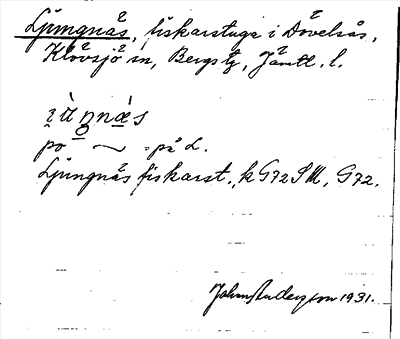 Ljungnäs, fiskarstuga i Dövelsås,
Klövsjö sn, Bergs tg, Jämtl. l.
på L.
Ljungnäs fiskarst., k G72 SM, G72.
Johan Anderson 1931.